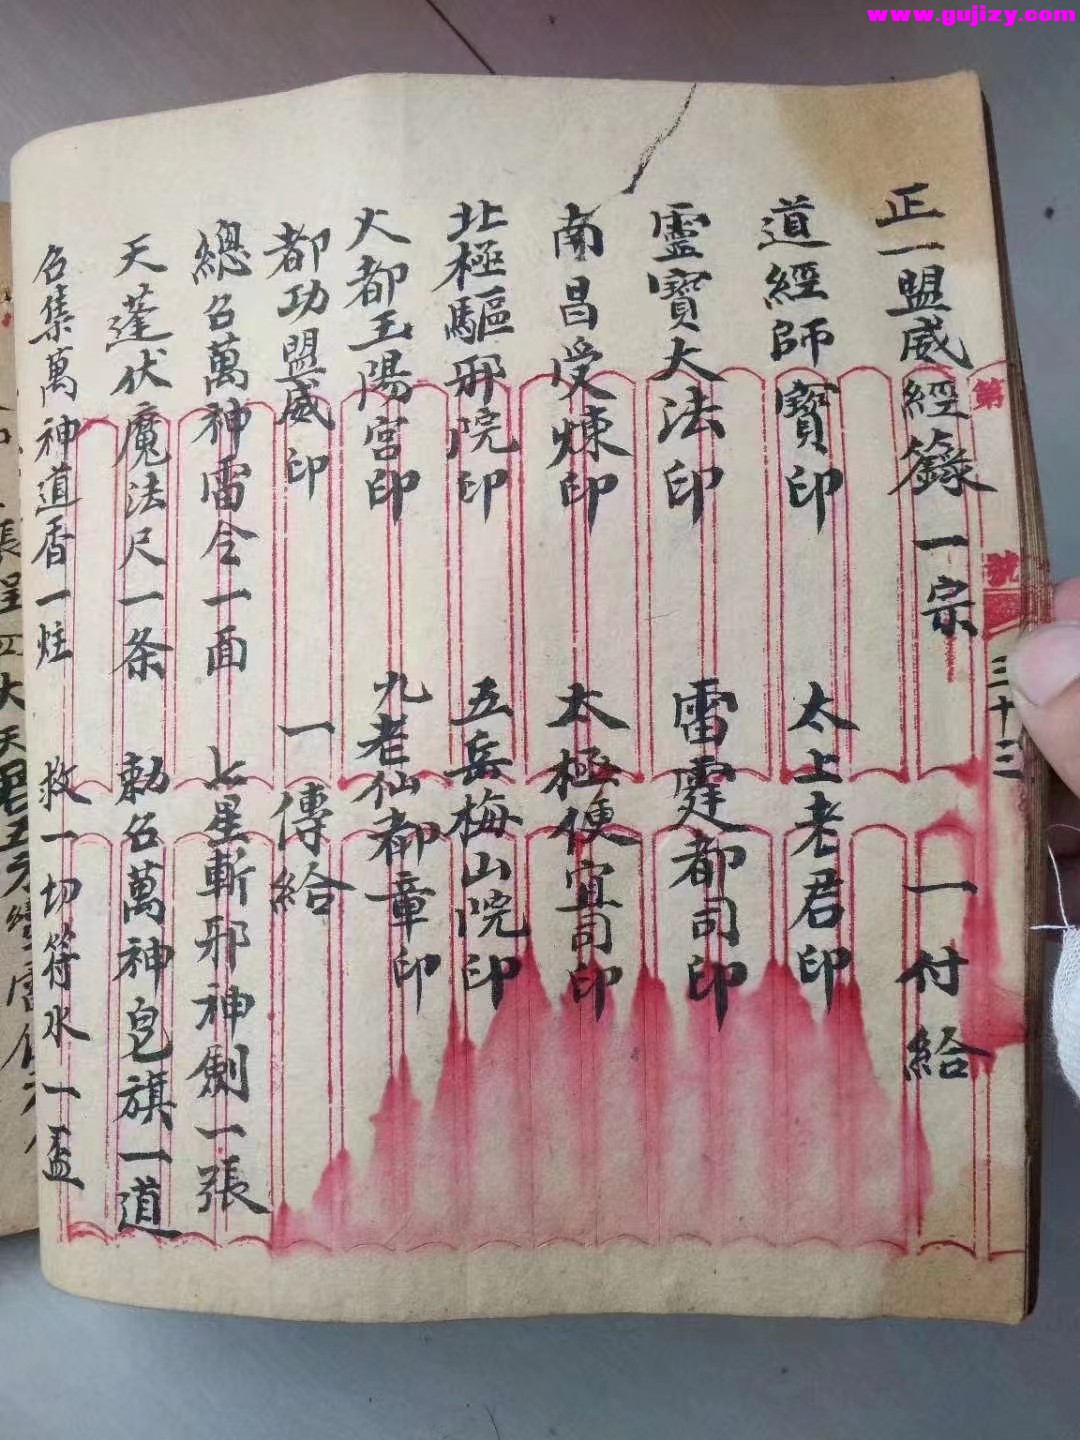 www.gujizy.com
第 號 三十三
正一盟威經籙一宗 一付給
道經師寶印 太上老君印
靈寶大法印 雷霆都司印
南昌受煉印 太極便宜司印
北極驅邪院印 五岳梅山院印
大都玉陽宮印 九老仙都章印
都功盟威印 一傳給
總召萬神雷令一面 七星斬邪神劍一張
天蓬伏魔法尺一条 勅召萬神皂旗一道
召集萬神道香一炷 救一切符水一盃